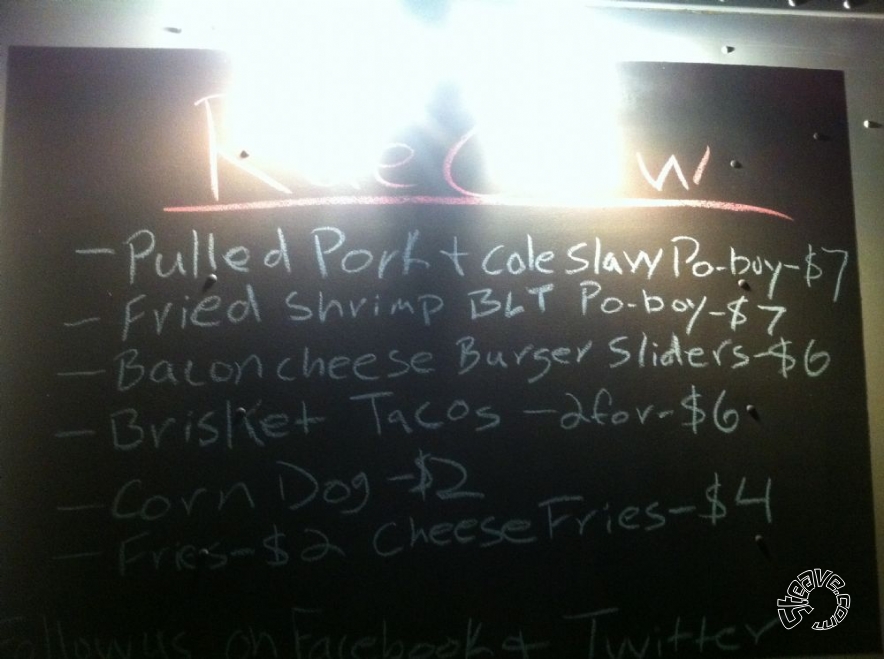 - Pulled Pork + cole slaw Po-boy-$7
- Fried shrimp BLT Po-boy-$7
- Bacon cheese Burger Sliders-$6
- Brisket Tacos -2for-$6
- Corn Dog-$2
- Fries-$2 Cheese Fries-$4
Follow us on Facebook + Twitter
Steave.com